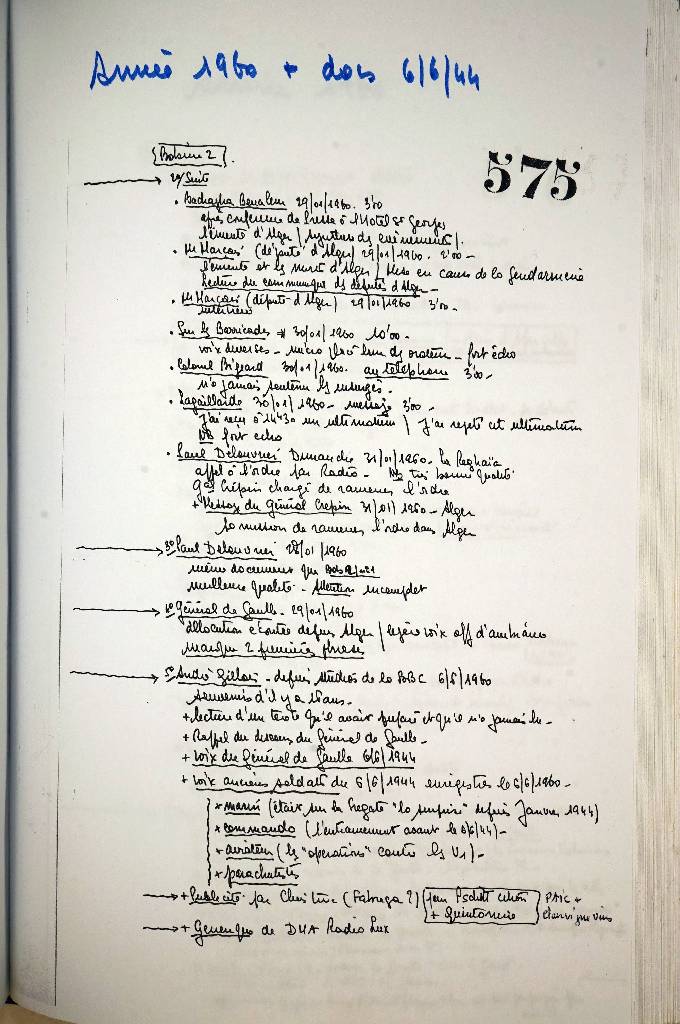 Année 1960 + docs 6/6/44
Bobine 2
575
2°/ Suite
• Bachagha Boualem 29/01/1960. 3'00
après conférence de Presse à l'Hotel St Georges
l'émeute d'Alger / mystère des événements /.
• Mr Marçais (député d'Alger) 29/01/1960. 2'00 -
l'émeute et les morts d'Alger / Mise en cause de la Gendarmerie
Lecture du communiqué des députés d'Alger -
• Mr Marçais (député d'Alger) 29/01/1960 3'00 -
interview
• Sur les Barricades 30/01/1960 10'00 -
voix diverses - micro des orateurs - fort écho
• Colonel Bigeard 30/01/1960. au téléphone 3'00 -
n'a jamais soutenu les insurgés -
• Lagaillarde 30/01/1960 - message 3'00 -
J'ai reçu à 14h30 un ultimatum / J'ai rejeté cet ultimatum
NB fort écho
• Paul Delouvrier Dimanche 31/01/1960 - La Reghaïa
appel à l'ordre par Radio - NB très bonne qualité
Gal Crépin chargé de ramener l'ordre
+ Message du Général Crepin 31/01/1960 - Alger
sa mission de ramener l'ordre dans Alger
3° Paul Delouvrier 28/01/1960
même document que
meilleure qualité - Attention incomplet
4° Général de Gaulle - 29/01/1960
allocution écoutée depuis Alger / légère voix off d'ambiance
manque 2 premières phrases
5° André Gillois - depuis studios de la BBC 6/6/1960
souvenirs d'il y a 16 ans -
+ lecture d'un texte qu'il avait préparé et qu'il n'a jamais lu -
+ Rappel du discours du Général de Gaulle -
+ voix du Général de Gaulle 6/6/1944
+ voix anciens soldats du 6/6/1944 enregistrés le 6/6/1960 -
+ marin (était sur la frégate "la surprise" depuis Janvier 1944)
+ commando (l'entrainement avant le 6/6/44) -
+ aviateur (les "opérations" contre les V1) -
+ parachutistes
+ Publicité par Christine (Fabrega ?) Jean
+ Quintonine
PAIC +
+ Générique de DMA Radio Lux